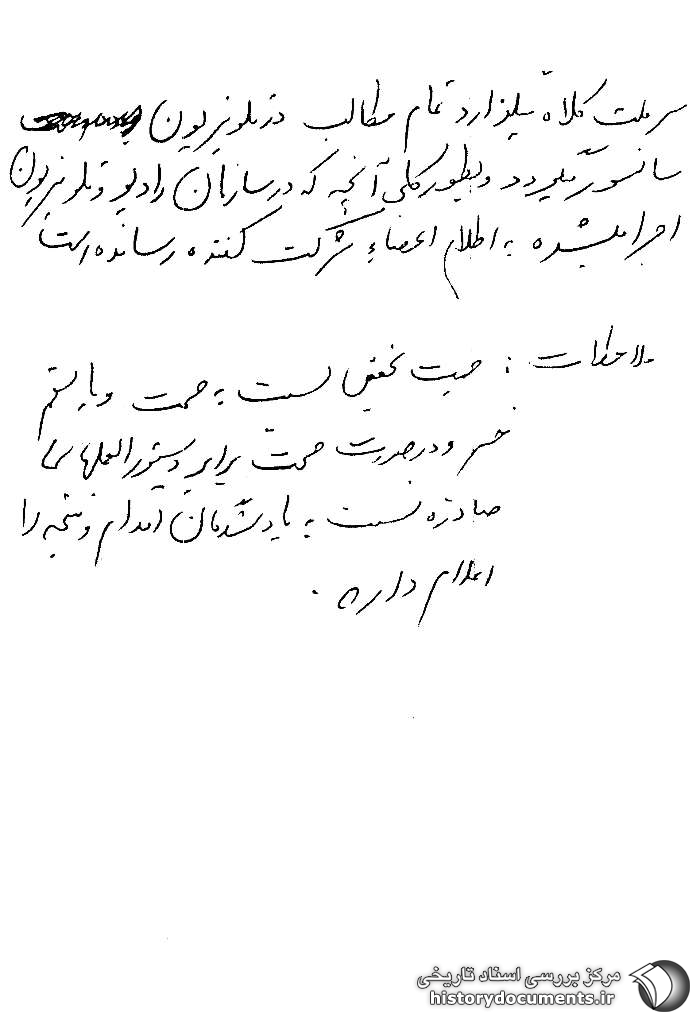 سر ملت کلاه میگذارد تمام مطالب در تلویزیون
سانسور میگردد و بطور کلی آنچه که در سازمان رادیو و تلویزیون
اجرا میشده به اطلاع اعضاء شرکت کننده رسانده است
ملاحظات : جهت تحقیق نسبت به صحت و یا سقم
خبر و در صورت صحت برابر دستورالعملهای
صادره نسبت به یادشدگان اقدام و نتیجه را
اعلام دارند .
مرکز بررسی اسناد تاریخی
historydocuments.ir